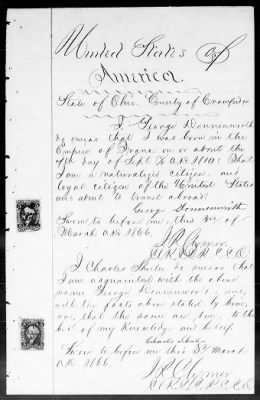 United States of
America.
State of Ohio. County of Crawford
I George Donnenwirth
do swear that I was born in the
Empire of France on or about the
day of Sept A.D. 1810: That
I am a naturalized citizen, and
loyal citizen of the United States
and about to travel abroad:
George Donnenwirth
Sworn to before me, this 3rd of
March A.D. 1866.
I Charles do swear that
I am acquainted with the above
named George Donnenwirth and
with the facts above stated by him,
and that the same are true, to the
best of my knowledge and belief.
Charles
Sworn to before me this 3rd March
A.D. 1866.